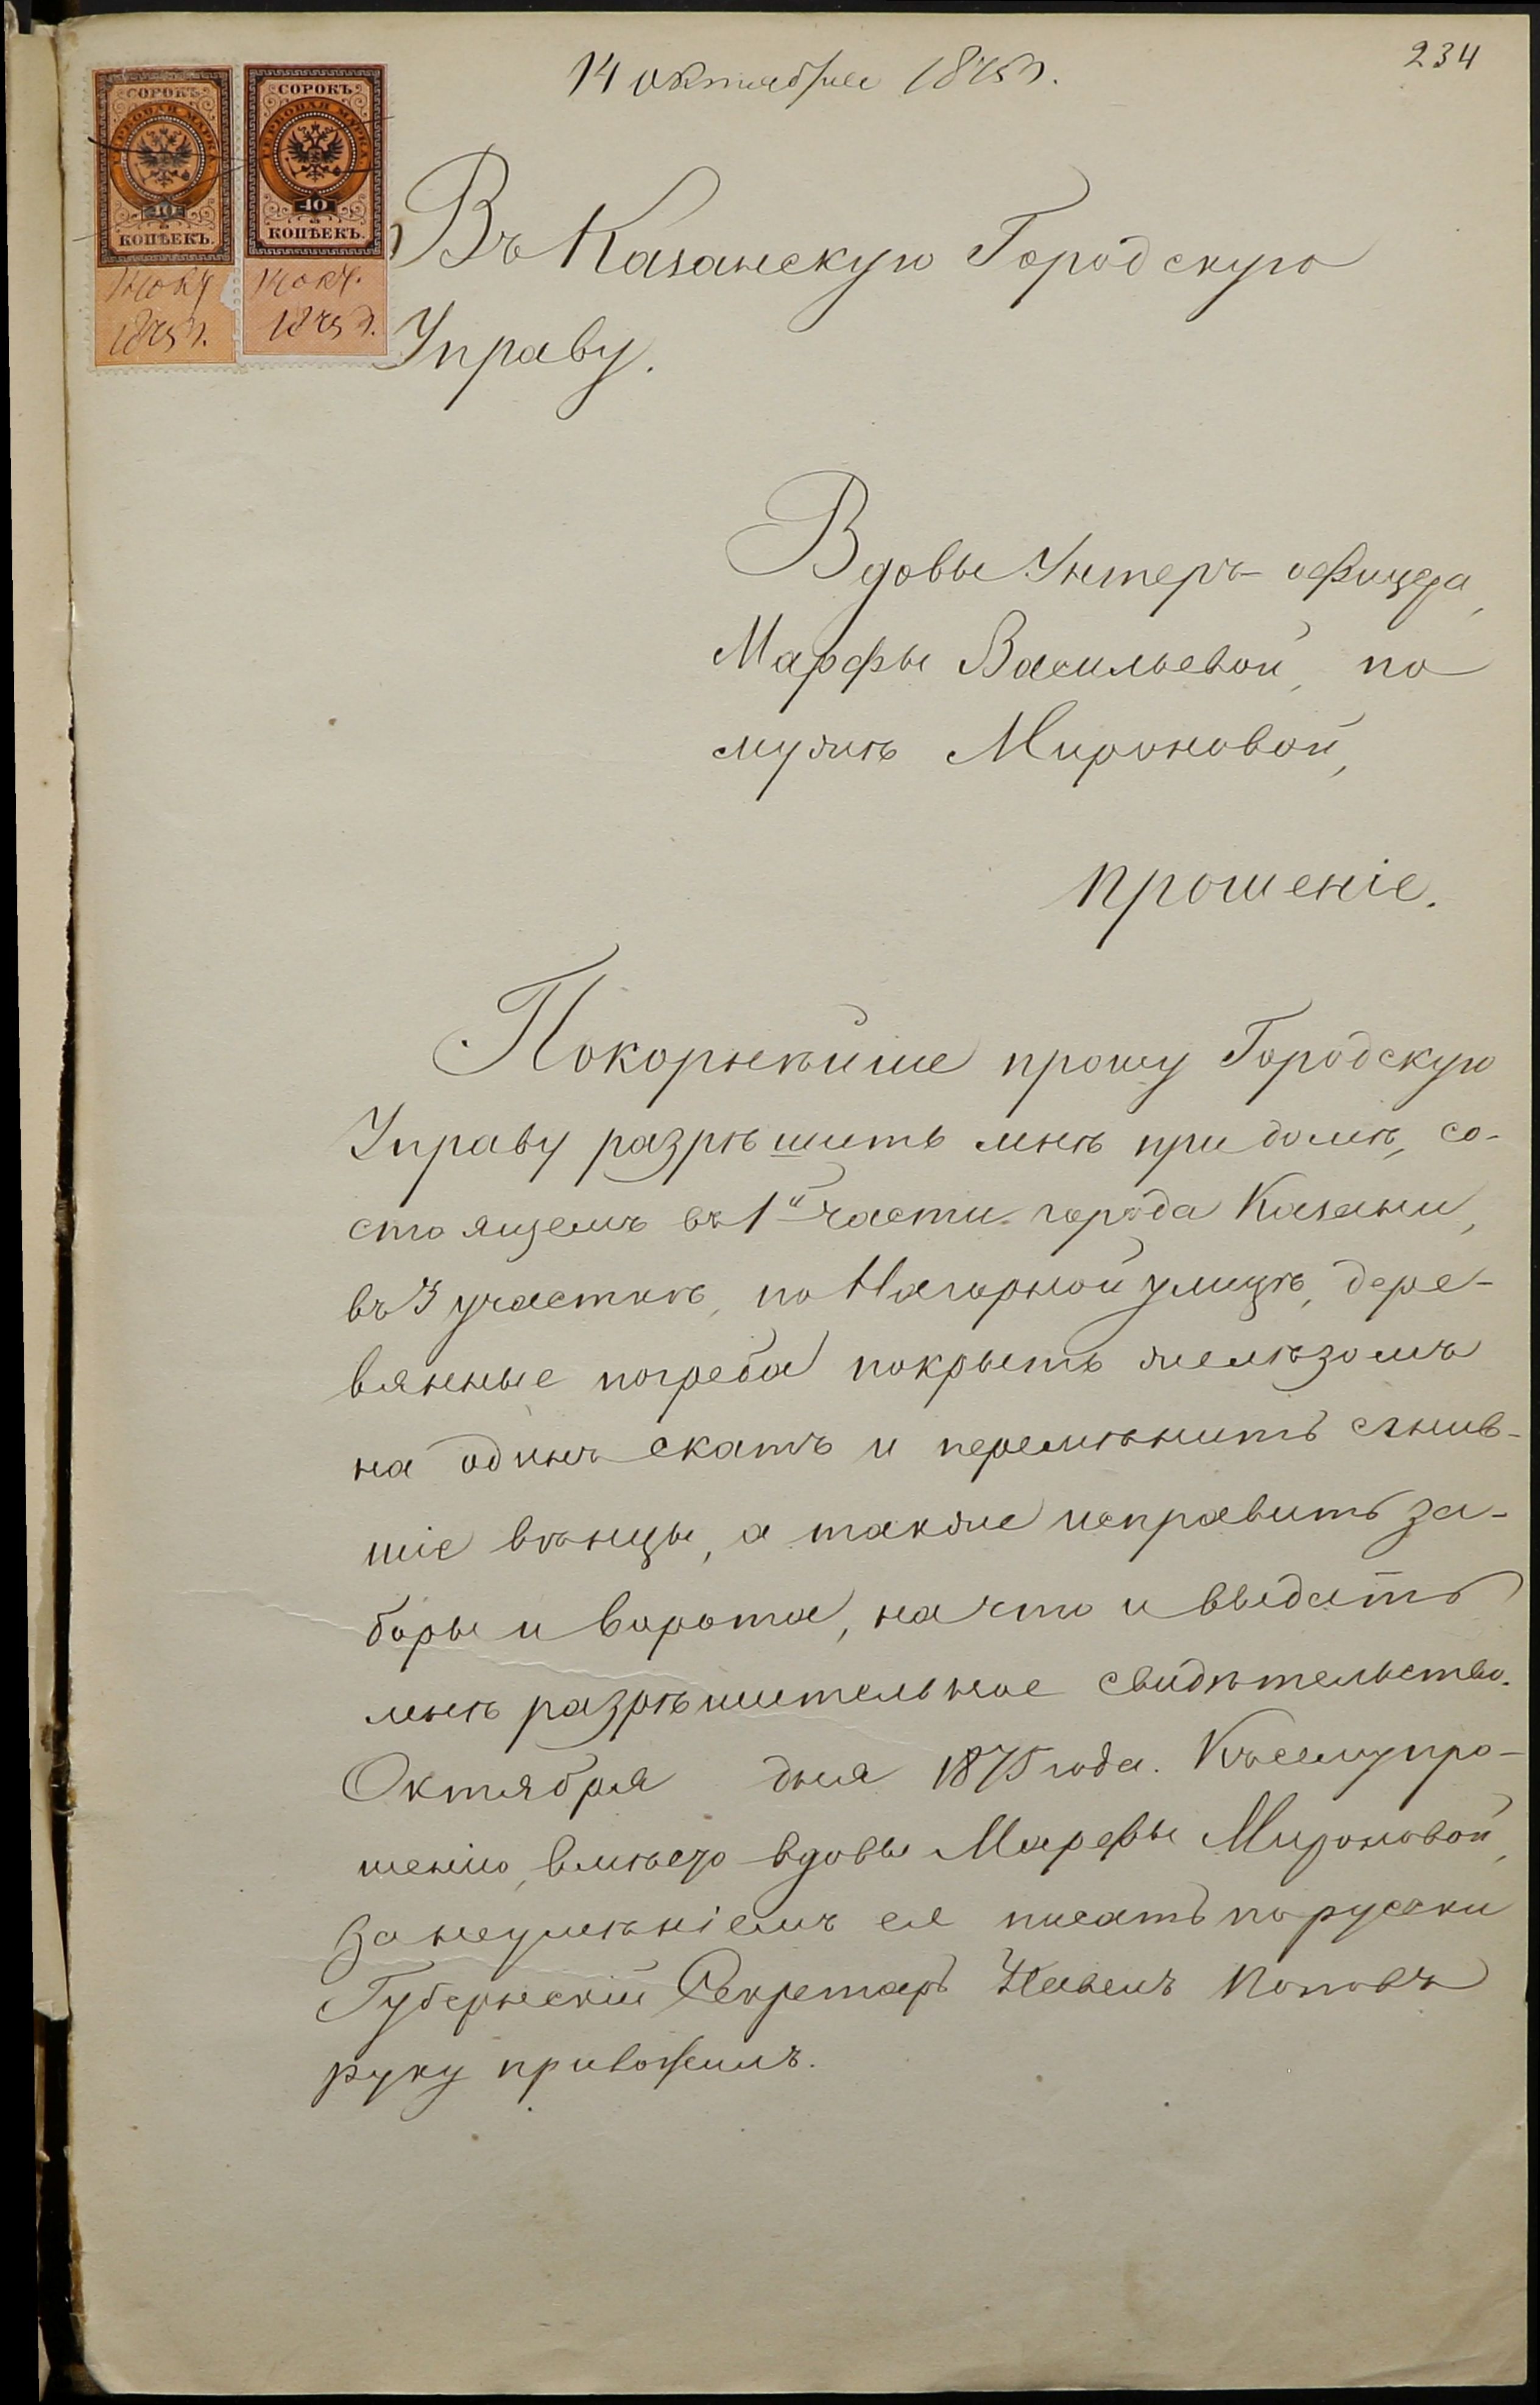 234
14 октября 1875 г.
СОРОКЪ
ГЕРБОВАЯ МАРКА
40
КОПѢЕКЪ.
14 окт.
1875 г.
СОРОКЪ
ГЕРБОВАЯ МАРКА
40
КОПѢЕКЪ.
14 окт.
1875 г.
Въ Казанскую Городскую
Управу.
Вдовы Унтеръ-офицера,
Марфы Васильевой, по
мужѣ Мироновой,
прошеніе.
Покорнѣйше прошу Городскую
Управу разрѣшить мнѣ при домѣ, со-
стоящемъ въ 1й части города Казани,
въ 3 участкѣ, по Нагорной улицѣ, дере-
вянные погреба покрыть желѣзомъ
на одинъ скатъ и перемѣнить сгнив-
шіе вѣнцы, а также исправить за-
боры и ворота, на что и выдать
мнѣ разрѣшительное свидѣтельство.
Октября дня 1875 года. Къ сему про-
шенію, вмѣсто вдовы Марфы Мироновой,
за неумѣніемъ ея писать порусски
Губернскій Секретарь Поповъ
руку приложилъ.